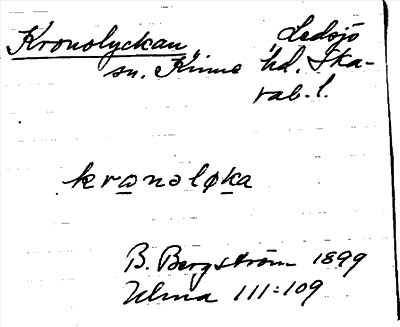 Kronolyckan, Ledsjö
sn. Kinne hd. Ska-
rab. l.
kronoløka
B. Bergström 1899
Ulma 111:109